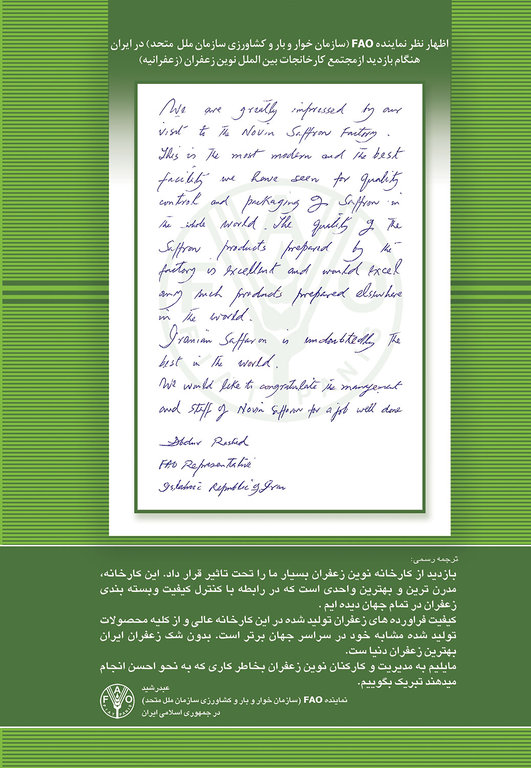 اظهار نظر نماینده FAO (سازمان خوار و بار و کشاورزی سازمان ملل متحد) در ایران
هنگام بازدید از مجتمع کارخانجات بین الملل نوین زعفران (زعفرانیه)
We are greatly impressed by our
visit to the Novin Saffron Factory.
This is the most modern and the best
facility we have seen for quality
control and packaging of Saffron in
the whole world. The quality of the
Saffron products prepared by the
factory is excellent and would excel
any such products prepared elsewhere
in the world.
Iranian Saffaron is undoubtedly the
best in the world.
We would like to congratulate the management
and staff of Novin Saffron for a job well done
Abdur Rashid
FAO Representative
Islamic Republic of Iran
ترجمه رسمی:
بازدید از کارخانه نوین زعفران بسیار ما را تحت تاثیر قرار داد. این کارخانه،
مدرن ترین و بهترین واحدی است که در رابطه با کنترل کیفیت وبسته بندی
زعفران در تمام جهان دیده ایم .
کیفیت فراورده های زعفران تولید شده در این کارخانه عالی و از کلیه محصولات
تولید شده مشابه خود در سراسر جهان برتر است. بدون شک زعفران ایران
بهترین زعفران دنیا ست.
مایلیم به مدیریت و کارکنان نوین زعفران بخاطر کاری که به نحو احسن انجام
میدهند تبریک بگوییم.
عبدرشید
نماینده FAO (سازمان خوار و بار و کشاورزی سازمان ملل متحد)
در جمهوری اسلامی ایران
F A O